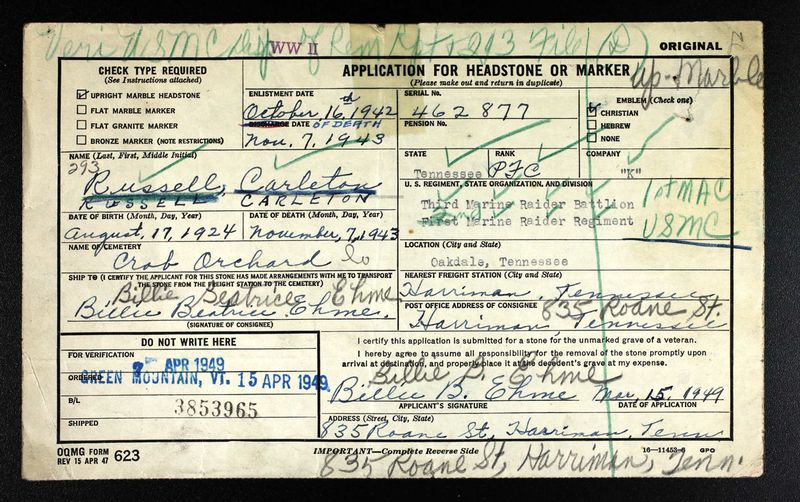 Veri USMC of Rem Rpt & 293 File (D)
WW II
ORIGINAL
CHECK TYPE REQUIRED
(See Instructions attached)
UPRIGHT MARBLE HEADSTONE
FLAT MARBLE MARKER
FLAT GRANITE MARKER
BRONZE MARKER (NOTE RESTRICTIONS)
APPLICATION FOR HEADSTONE OR MARKER
(Please make out and return in duplicate)
up-Marble
ENLISTMENT DATE
October, 16th, 1942
DISCHARGE DATE OF DEATH
Nov. 7, 1943
SERIAL No.
462877
PENSION No.
EMBLEM (Check one)
CHRISTIAN
HEBREW
NONE
STATE
Tennessee
RANK
PFC
COMPANY
"K"
NAME (Last, First, Middle Initial)
293
Russell, Carleton
RUSSELL CARLETON
U. S. REGIMENT, STATE ORGANIZATION, AND DIVISION
Third Marine Raider Battlion
First Marine Raider Regiment
1st MAC
USMC
DATE OF BIRTH (Month, Day, Year)
August, 17, 1924
DATE OF DEATH (Month, Day, Year)
November, 7, 1943
NAME OF CEMETERY
Crab Orchard Co
LOCATION (City and State)
Oakdale, Tennessee
SHIP TO (I CERTIFY THE APPLICANT FOR THIS STONE HAS MADE ARRANGEMENTS WITH ME TO TRANSPORT
THE STONE FROM THE FREIGHT STATION TO THE CEMETERY)
Billie Beatrice Ehme
Billie Beatrice Ehme.
(SIGNATURE OF CONSIGNEE)
NEAREST FREIGHT STATION (City and State)
Harriman, Tennessee
POST OFFICE ADDRESS OF CONSIGNEE
835 Roane St.
Harriman, Tennessee
DO NOT WRITE HERE
FOR VERIFICATION
APR 1949
ORDERED
GREEN MOUNTAIN, VT. 15 APR 1949
B/L
3853965
SHIPPED
I certify this application is submitted for a stone for the unmarked grave of a veteran.
I hereby agree to assume all responsibility for the removal of the stone promptly upon
arrival at destination, and properly place it at the decedent's grave at my expense.
Billie B. Ehme
Billie B. Ehme Mar, 15, 1949
APPLICANT'S SIGNATURE
DATE OF APPLICATION
ADDRESS (Street, City, State)
835 Roane St, Harriman, Tenn
OQMG FORM
REV 15 APR 47 623
IMPORTANT—Complete Reverse Side
16—11453-6 GPO
835 Roane St, Harriman, Tenn.